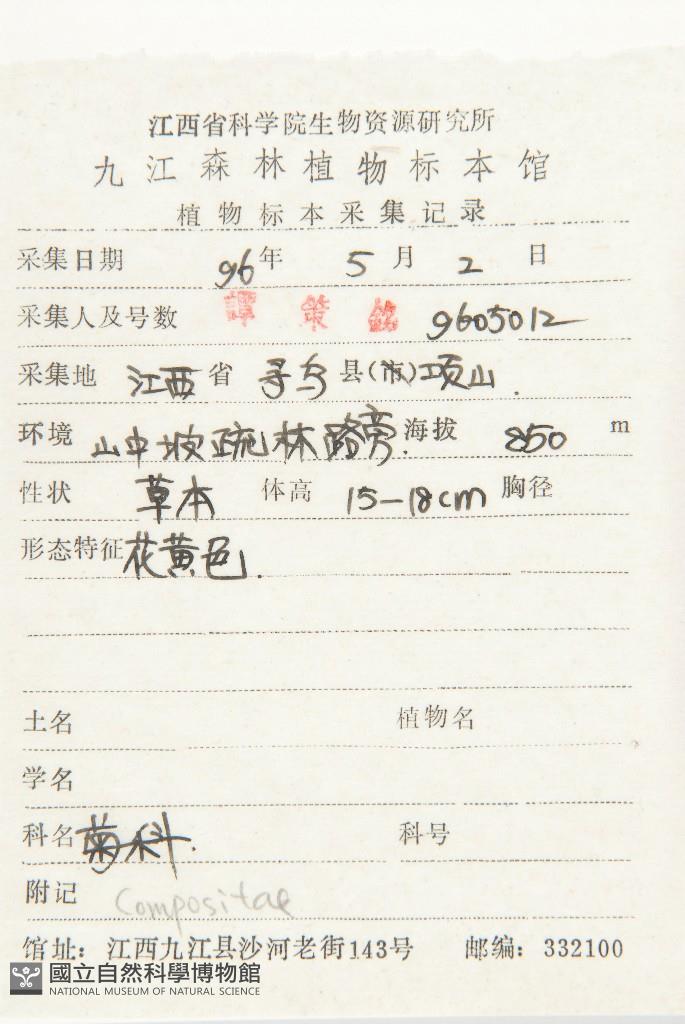 江西省科学院生物资源研究所
九江森林植物标本馆
植物标本采集记录
采集日期 96年 5月 2日
采集人及号数 譚策銘 9605012
采集地 江西省 寻乌县(市)项山.
环境 山中坡疏林路旁. 海拔 850 m
性状 草本 体高 15-18cm 胸径
形态特征 花黄色.
土名 植物名
学名
科名 菊科. 科号
附记 Compositae
馆址：江西九江县沙河老街143号 邮编：332100
國立自然科學博物館
NATIONAL MUSEUM OF NATURAL SCIENCE